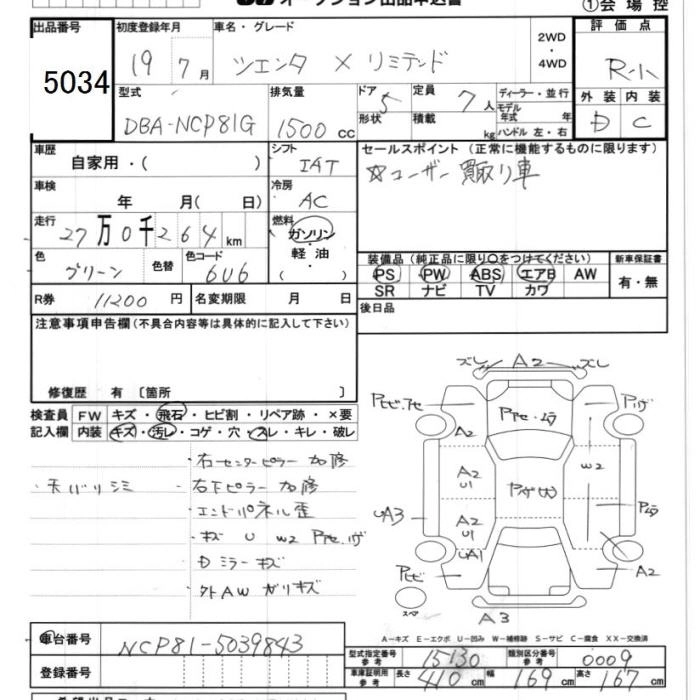 オークション出品申込書
①会場控
出品番号 5034
初度登録年月 19 7月
車名・グレード ツエンタ X リミテッド
2WD・4WD
評価点 R-ハ
型式 DBA-NCP81G
排気量 1500 cc
ドア 5
形状
定員 7人
積載 kg
ディーラー・並行
モデル年式 年
ハンドル 左・右
外装 内装
D C
車歴 自家用・( )
シフト IAT
セールスポイント(正常に機能するものに限ります)
☆ユーザー買取り車
車検 年 月( 日)
冷房 AC
走行 27万0千264km
燃料 ガソリン・軽油・( )
色 グリーン
色替
色コード 6U6
装備品(純正品に限り〇をつけてください)
新車保証書
PS PW ABS エアB AW
有・無
SR ナビ TV カワ
R券 11200 円
名変期限 月 日
後日品
注意事項申告欄(不具合内容等は具体的に記入して下さい)
修復歴 有〔箇所 〕
検査員記入欄
FW キズ・飛石・ヒビ割・リペア跡・×要
内装 キズ・汚レ・コゲ・穴・スレ・キレ・破レ
・右センターピラー加修
・天バリシミ
・右下ピラー加修
・エンドパネル歪
・キズ U W2 Pアセ.ハゲ
・Dミラーキズ
・外AWガリキズ
ズレ A2 ズレ
Pヒビ.アセ
Pアセ・ムラ
Pハゲ
A2
A2 U1
W2
UA3
A2 U1
Pムラ
UA1
Pヒビ
A2
スペア
A3
A-キズ E-エクボ U-凹み W-補修跡 S-サビ C-腐食 XX-交換済
車台番号 NCP81-5039843
型式指定番号 参考 15130
類別区分番号 参考 0009
登録番号
車庫証明用 参考 長さ 410cm 幅 169cm 高さ 167cm